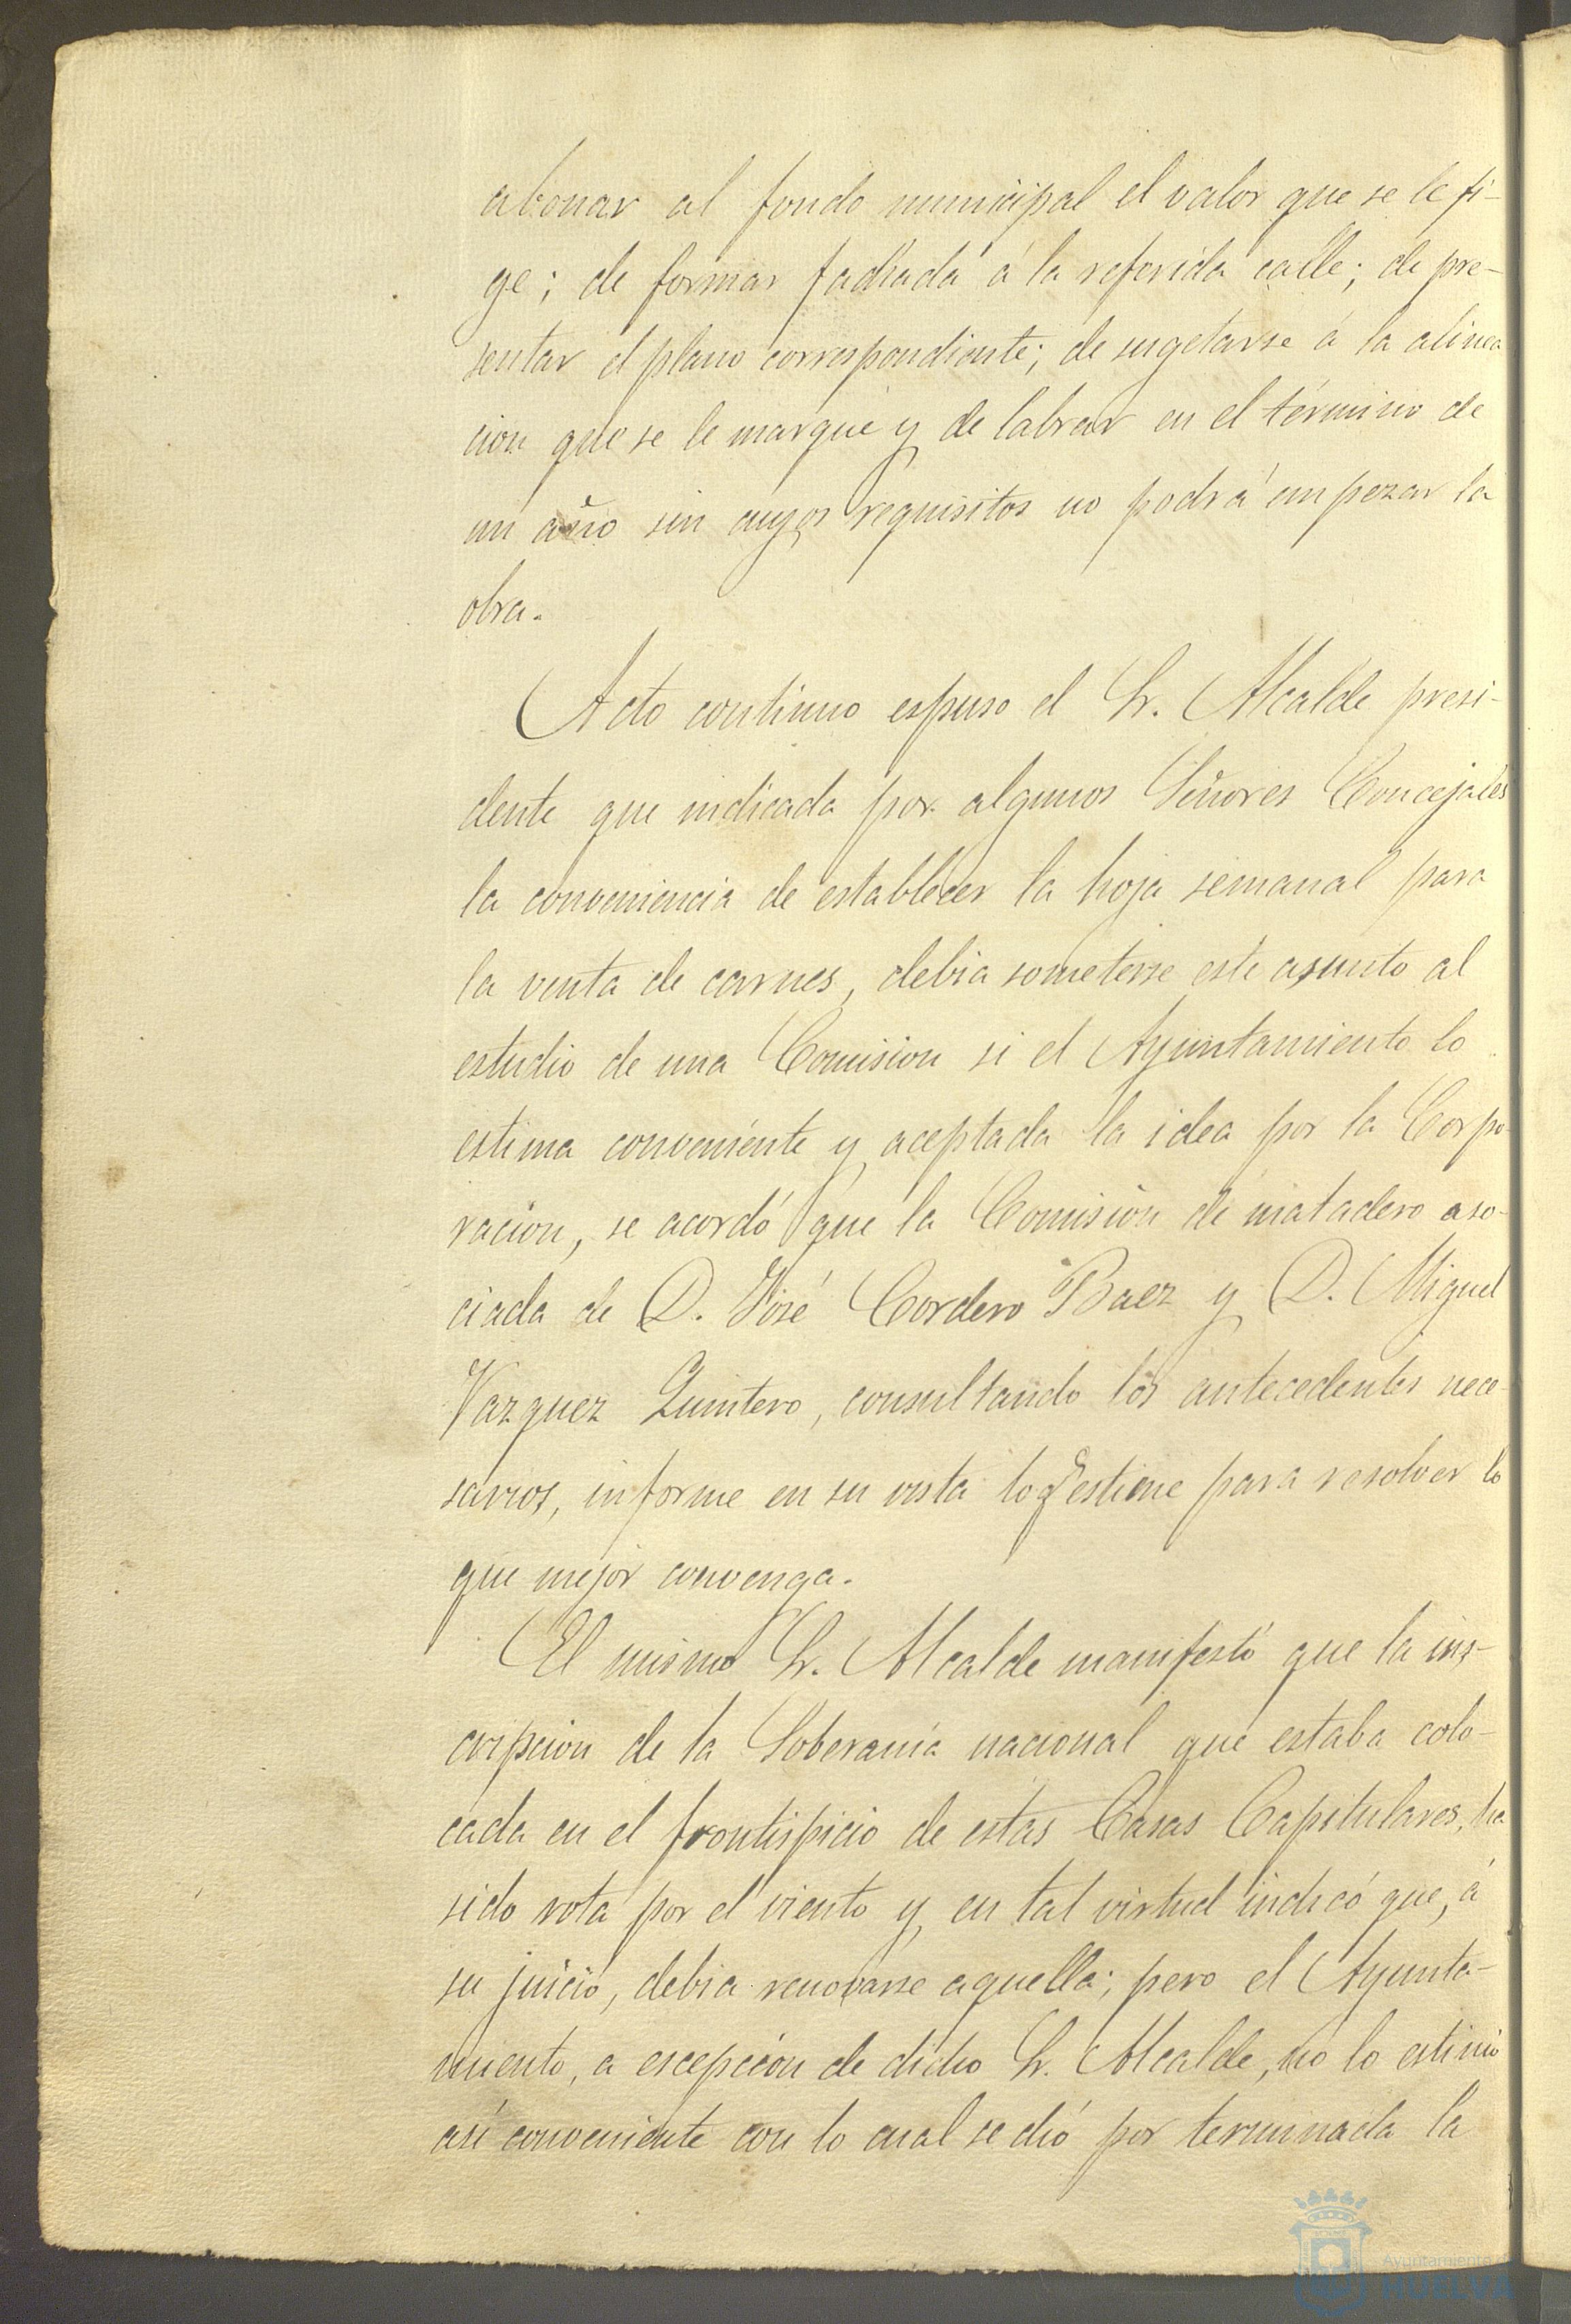 abonar al fondo municipal el valor que se le fi-
ge; de formar fachada á la referida calle; de pre-
sentar el plano correspondiente; de sugetarse á la alinea
cion que se le marque y de labrar en el término de
un año sin cuyos requisitos no podrá empezar la
obra.
Acto continuo espuso el Sr. Alcalde presi-
dente que indicada por algunos Señores Concejales
la conveniencia de establecer la hoja semanal para
la venta de carnes, debia someterse este asunto al
estudio de una Comision si el Ayuntamiento lo
estima conveniente y aceptada la idea por la Corpo-
racion, se acordó que la Comision de matadero aso-
ciada de D. José Cordero Baez y D. Miguel
Vazquez Quintero, consultando los antecedentes nece-
sarios, informe en su vista lo q.e estime para resolver lo
que mejor convenga.
El mismo Sr. Alcalde manifestó que la ins-
cripcion de la Soberanía nacional que estaba colo-
cada en el frontispicio de estas Casas Capitulares, ha
sido rota por el viento y, en tal virtud indicó que, á
su juicio, debia renovarse aquella; pero el Ayunta-
miento, a escepcion de dicho Sr. Alcalde, no lo estimó
así conveniente con lo cual se dió por terminada la
Ayuntamiento
HUELVA